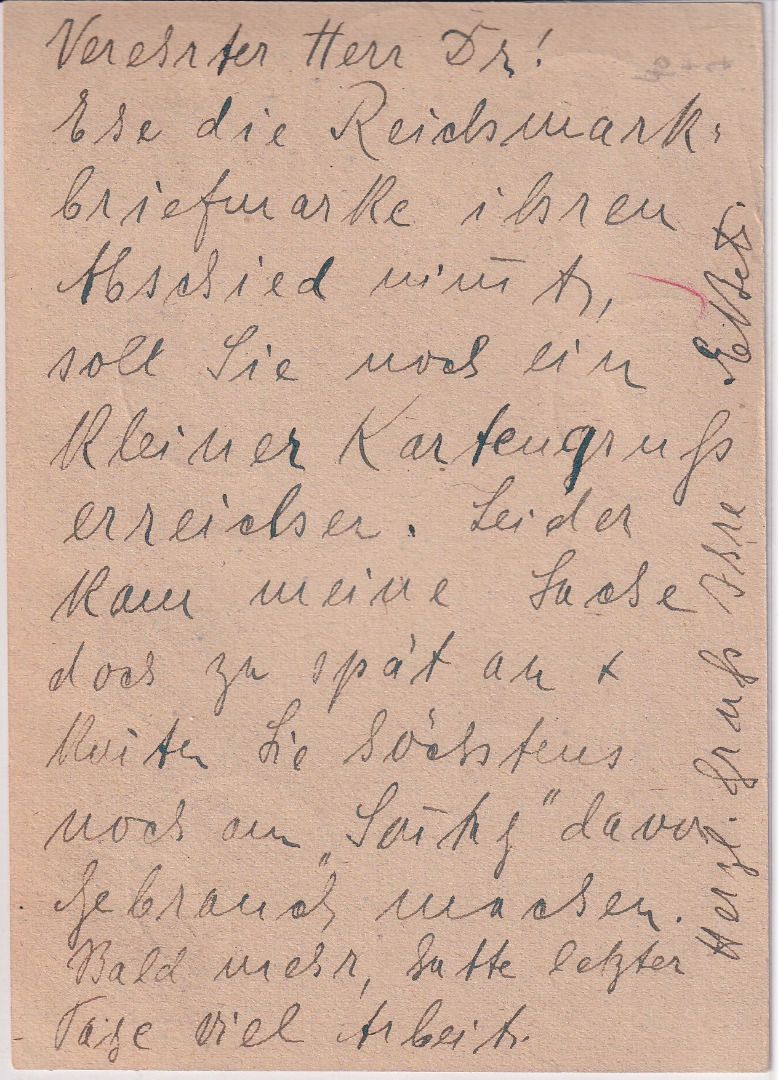 Verehrter Herr Dr!
Ehe die Reichsmark-
briefmarke ihren
Abschied nim̅t,
soll Sie noch ein
kleiner Kartengruß
erreichen. Leider
kam meine Sache
doch zu spät an +
Sie höchstens
noch am „Sonntg" davon
Gebrauch machen.
Bald mehr, hatte letzter
Tage viel Arbeit.
Herzl. Gruß Ihre